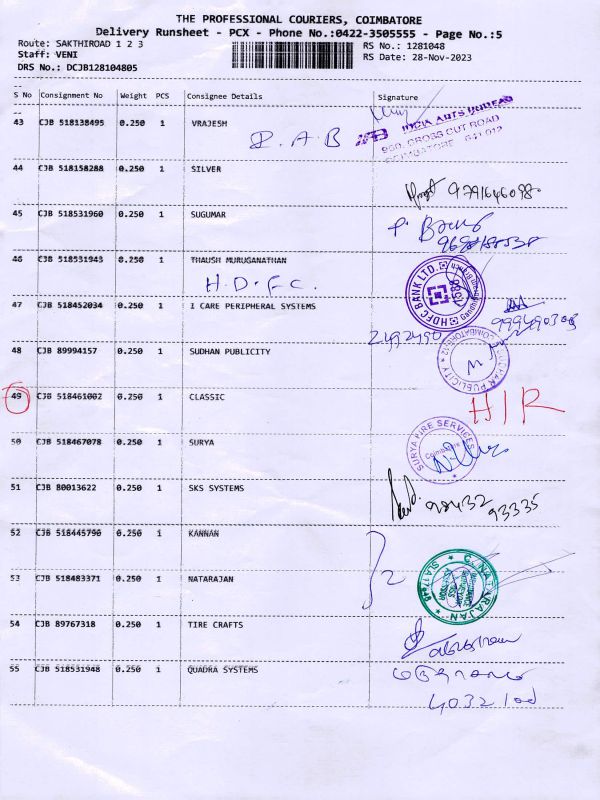 THE PROFESSIONAL COURIERS, COIMBATORE
Delivery Runsheet - PCX - Phone No.:0422-3505555 - Page No.:5
Route: SAKTHIROAD 1 2 3 RS No.: 1281048
Staff: VENI RS Date: 28-Nov-2023
DRS No.: DCJB128104805
S No Consignment No Weight PCS Consignee Details Signature
43 CJB 518138495 0.250 1 VRAJESH
R. A. B
INDIA ARTS BUREAU
950, CROSS CUT ROAD
COIMBATORE - 641 012
44 CJB 518158288 0.250 1 SILVER
9791646098
45 CJB 518531960 0.250 1 SUGUMAR
46 CJB 518531943 0.250 1 THAUSH MURUGANATHAN
H.D.F.C.
HDFC BANK LTD.
47 CJB 518452034 0.250 1 I CARE PERIPHERAL SYSTEMS
2492490
48 CJB 89994157 0.250 1 SUDHAN PUBLICITY
49 CJB 518461002 0.250 1 CLASSIC
H/R
50 CJB 518467078 0.250 1 SURYA
SURYA FIRE SERVICES
Coimbatore
51 CJB 80013622 0.250 1 SKS SYSTEMS
98432 93335
52 CJB 518445790 0.250 1 KANNAN
2
53 CJB 518483371 0.250 1 NATARAJAN
C. NATARAJAN
54 CJB 89767318 0.250 1 TIRE CRAFTS
55 CJB 518531948 0.250 1 QUADRA SYSTEMS